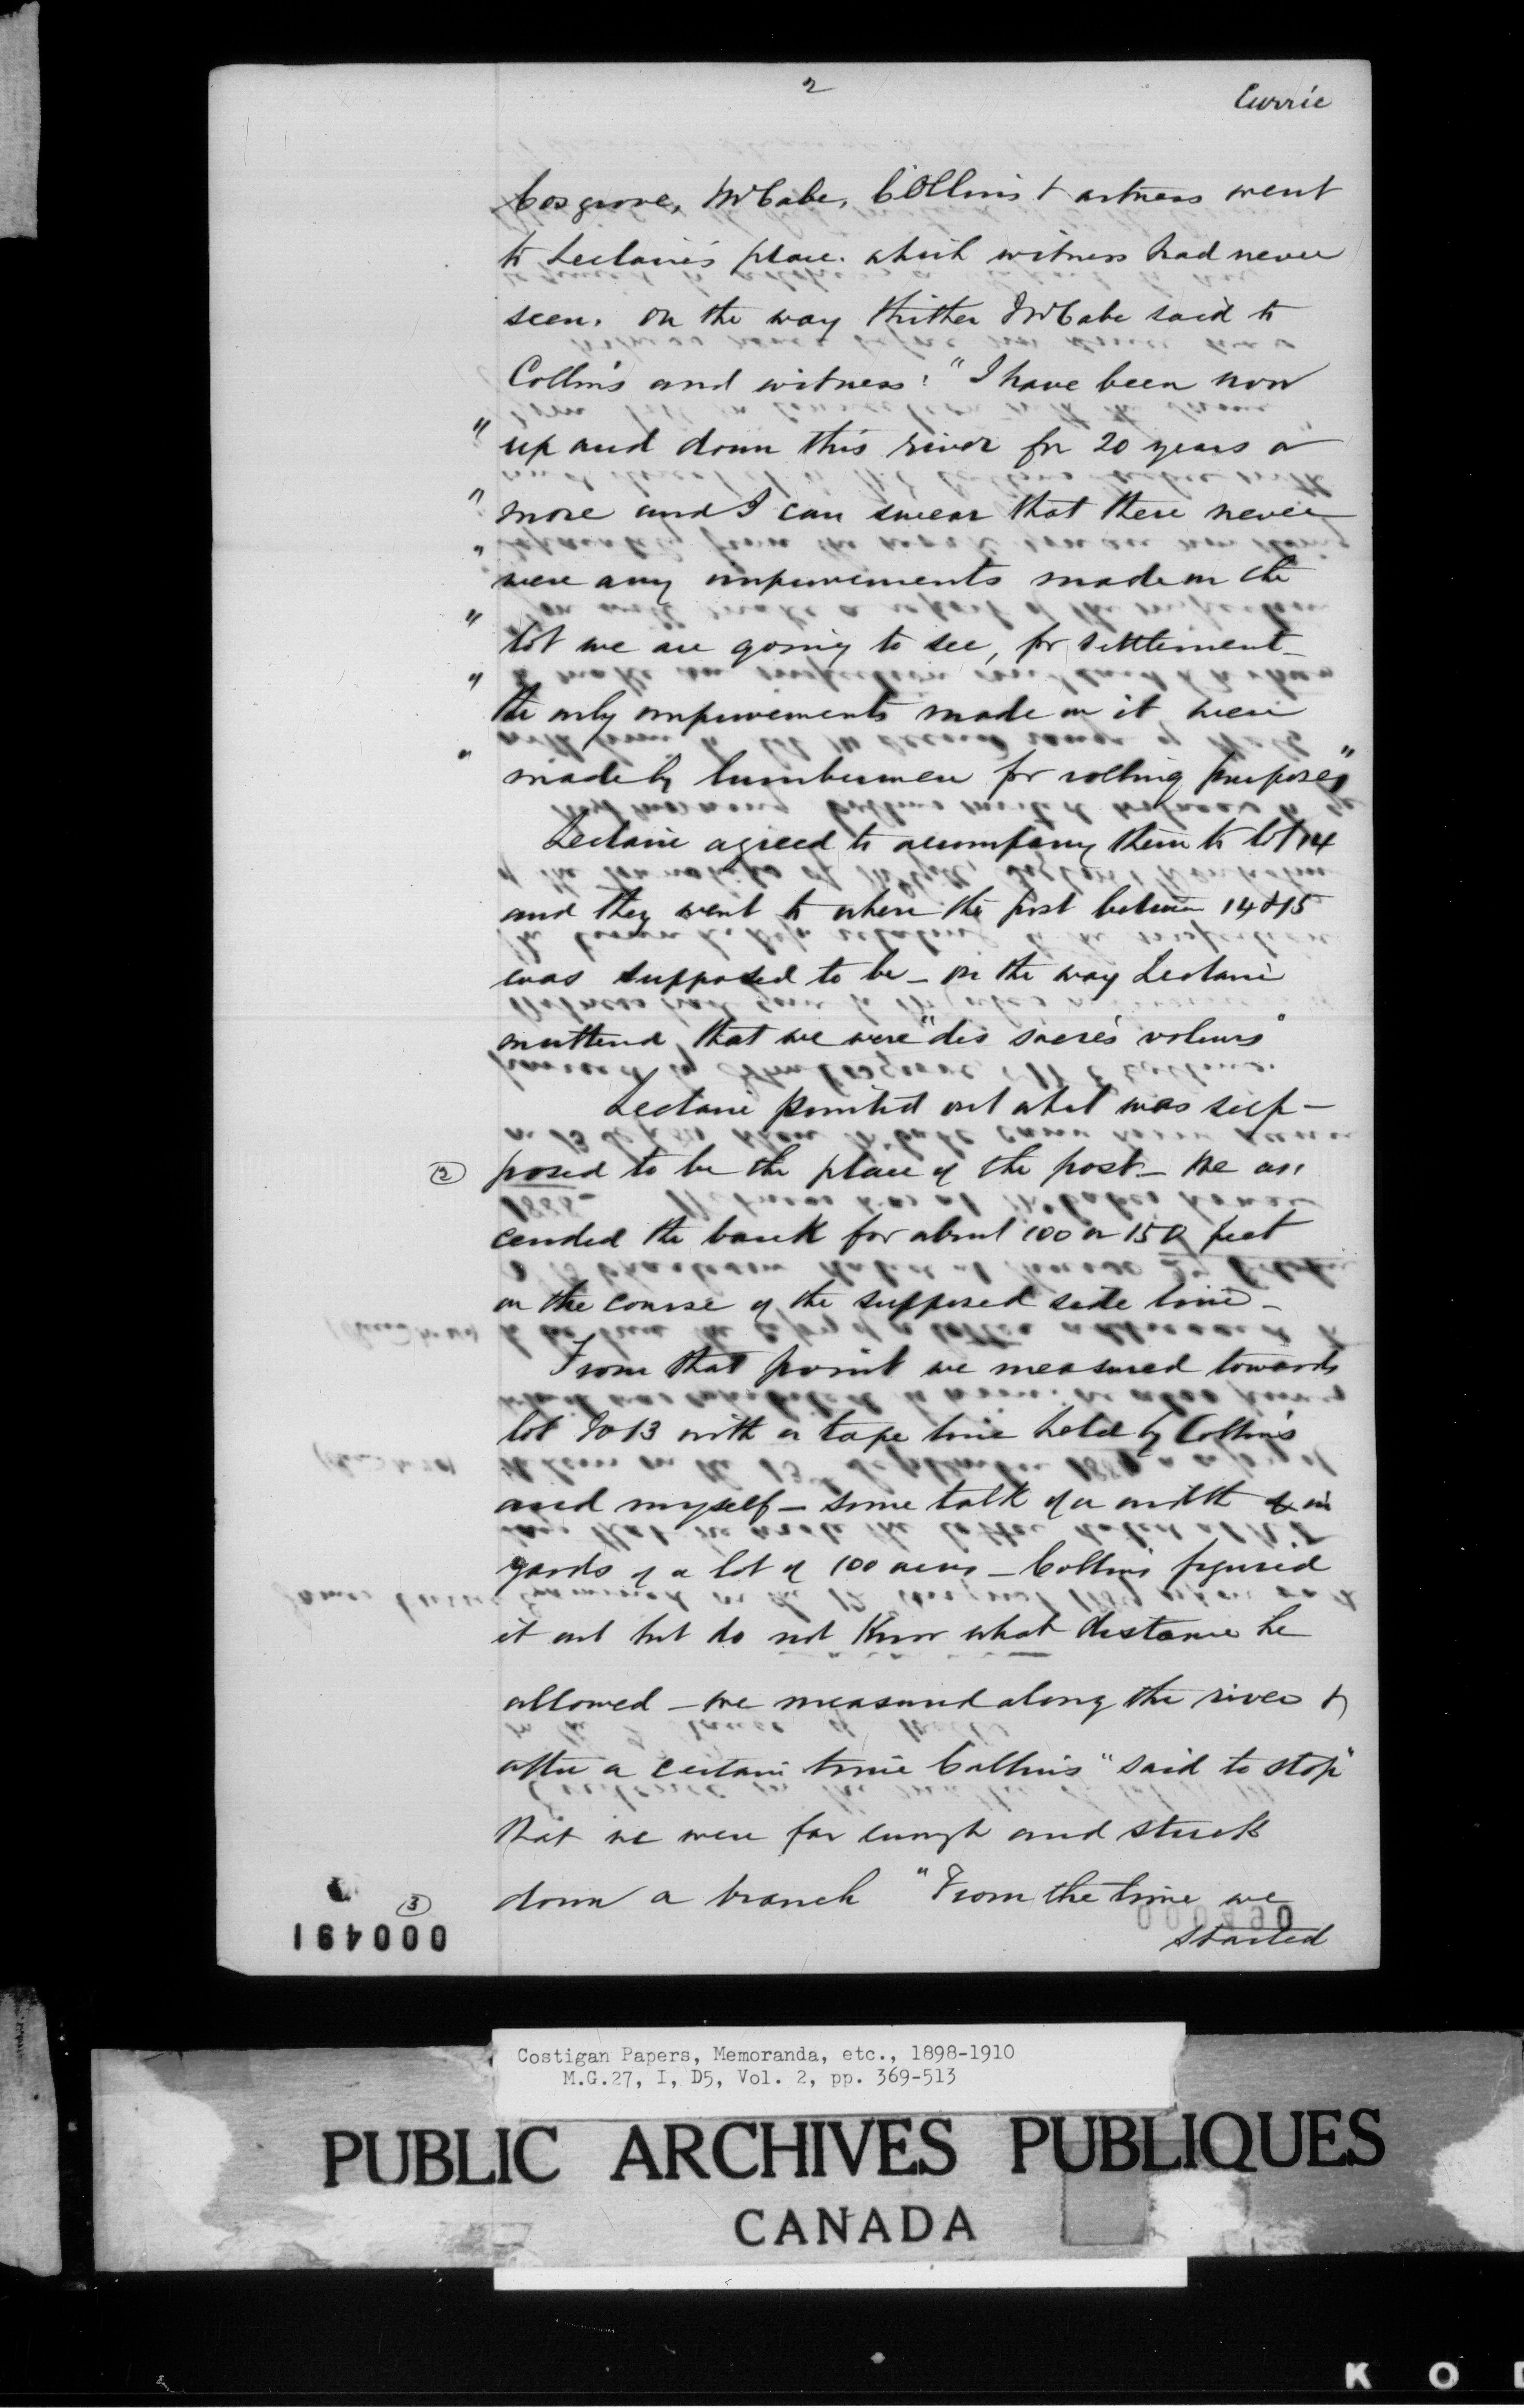 2
Currie
Cosgrove, McCabe, Collins & witness went
to Leclaire's place. which witness had never
seen. On the way thither McCabe said to
Collins and witness: "I have been now
" up and down this river for 20 years or
" more and I can swear that there never
" were any improvements made on the
" lot we are going to see, for settlement_
" the only improvements made on it were
" made by lumbermen for rolling purposes"
Leclaire agreed to accompany them to lot 14
and they went to where the post between 14 & 15
was supposed to be _ on the way Leclaire
muttered that we were "des sacrés voleurs"
Leclaire pointed out what was sup-
(2) posed to be the place of the post _ We as-
cended the bank for about 100 or 150 feet
on the course of the supposed side line _
From that point we measured towards
lot No 13 with a tape line held by Collins
and myself _ some talk of a width in
yards of a lot of 100 acres _ Collins figured
it out but do not know what distance he
allowed _ we measured along the river &
after a certain time Collins "said to stop"
that we were far enough and stuck
(3) down a branch "From the time we
started
000490
000491
Costigan Papers, Memoranda, etc., 1898-1910
M.G.27, I, D5, Vol. 2, pp. 369-513
PUBLIC ARCHIVES PUBLIQUES
CANADA
K O D